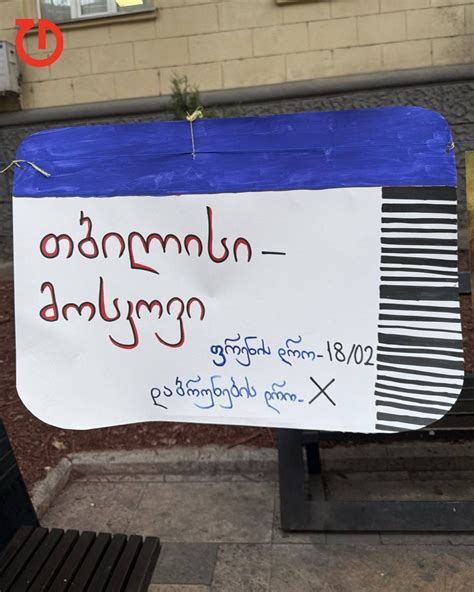 თბილისი —
მოსკოვი
ფრენის დრო - 18/02
დაბრუნების დრო - X